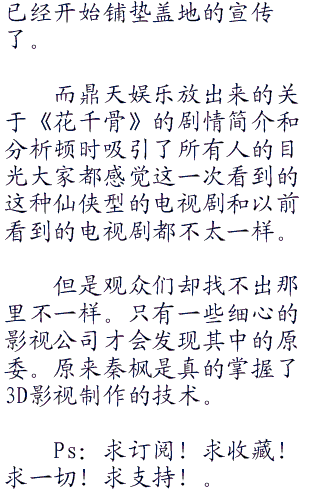 已经开始铺垫盖地的宣传
了。
而鼎天娱乐放出来的关
于《花千骨》的剧情简介和
分析顿时吸引了所有人的目
光大家都感觉这一次看到的
这种仙侠型的电视剧和以前
看到的电视剧都不太一样。
但是观众们却找不出那
里不一样。只有一些细心的
影视公司才会发现其中的原
委。原来秦枫是真的掌握了
3D影视制作的技术。
Ps：求订阅！求收藏！
求一切！求支持！。